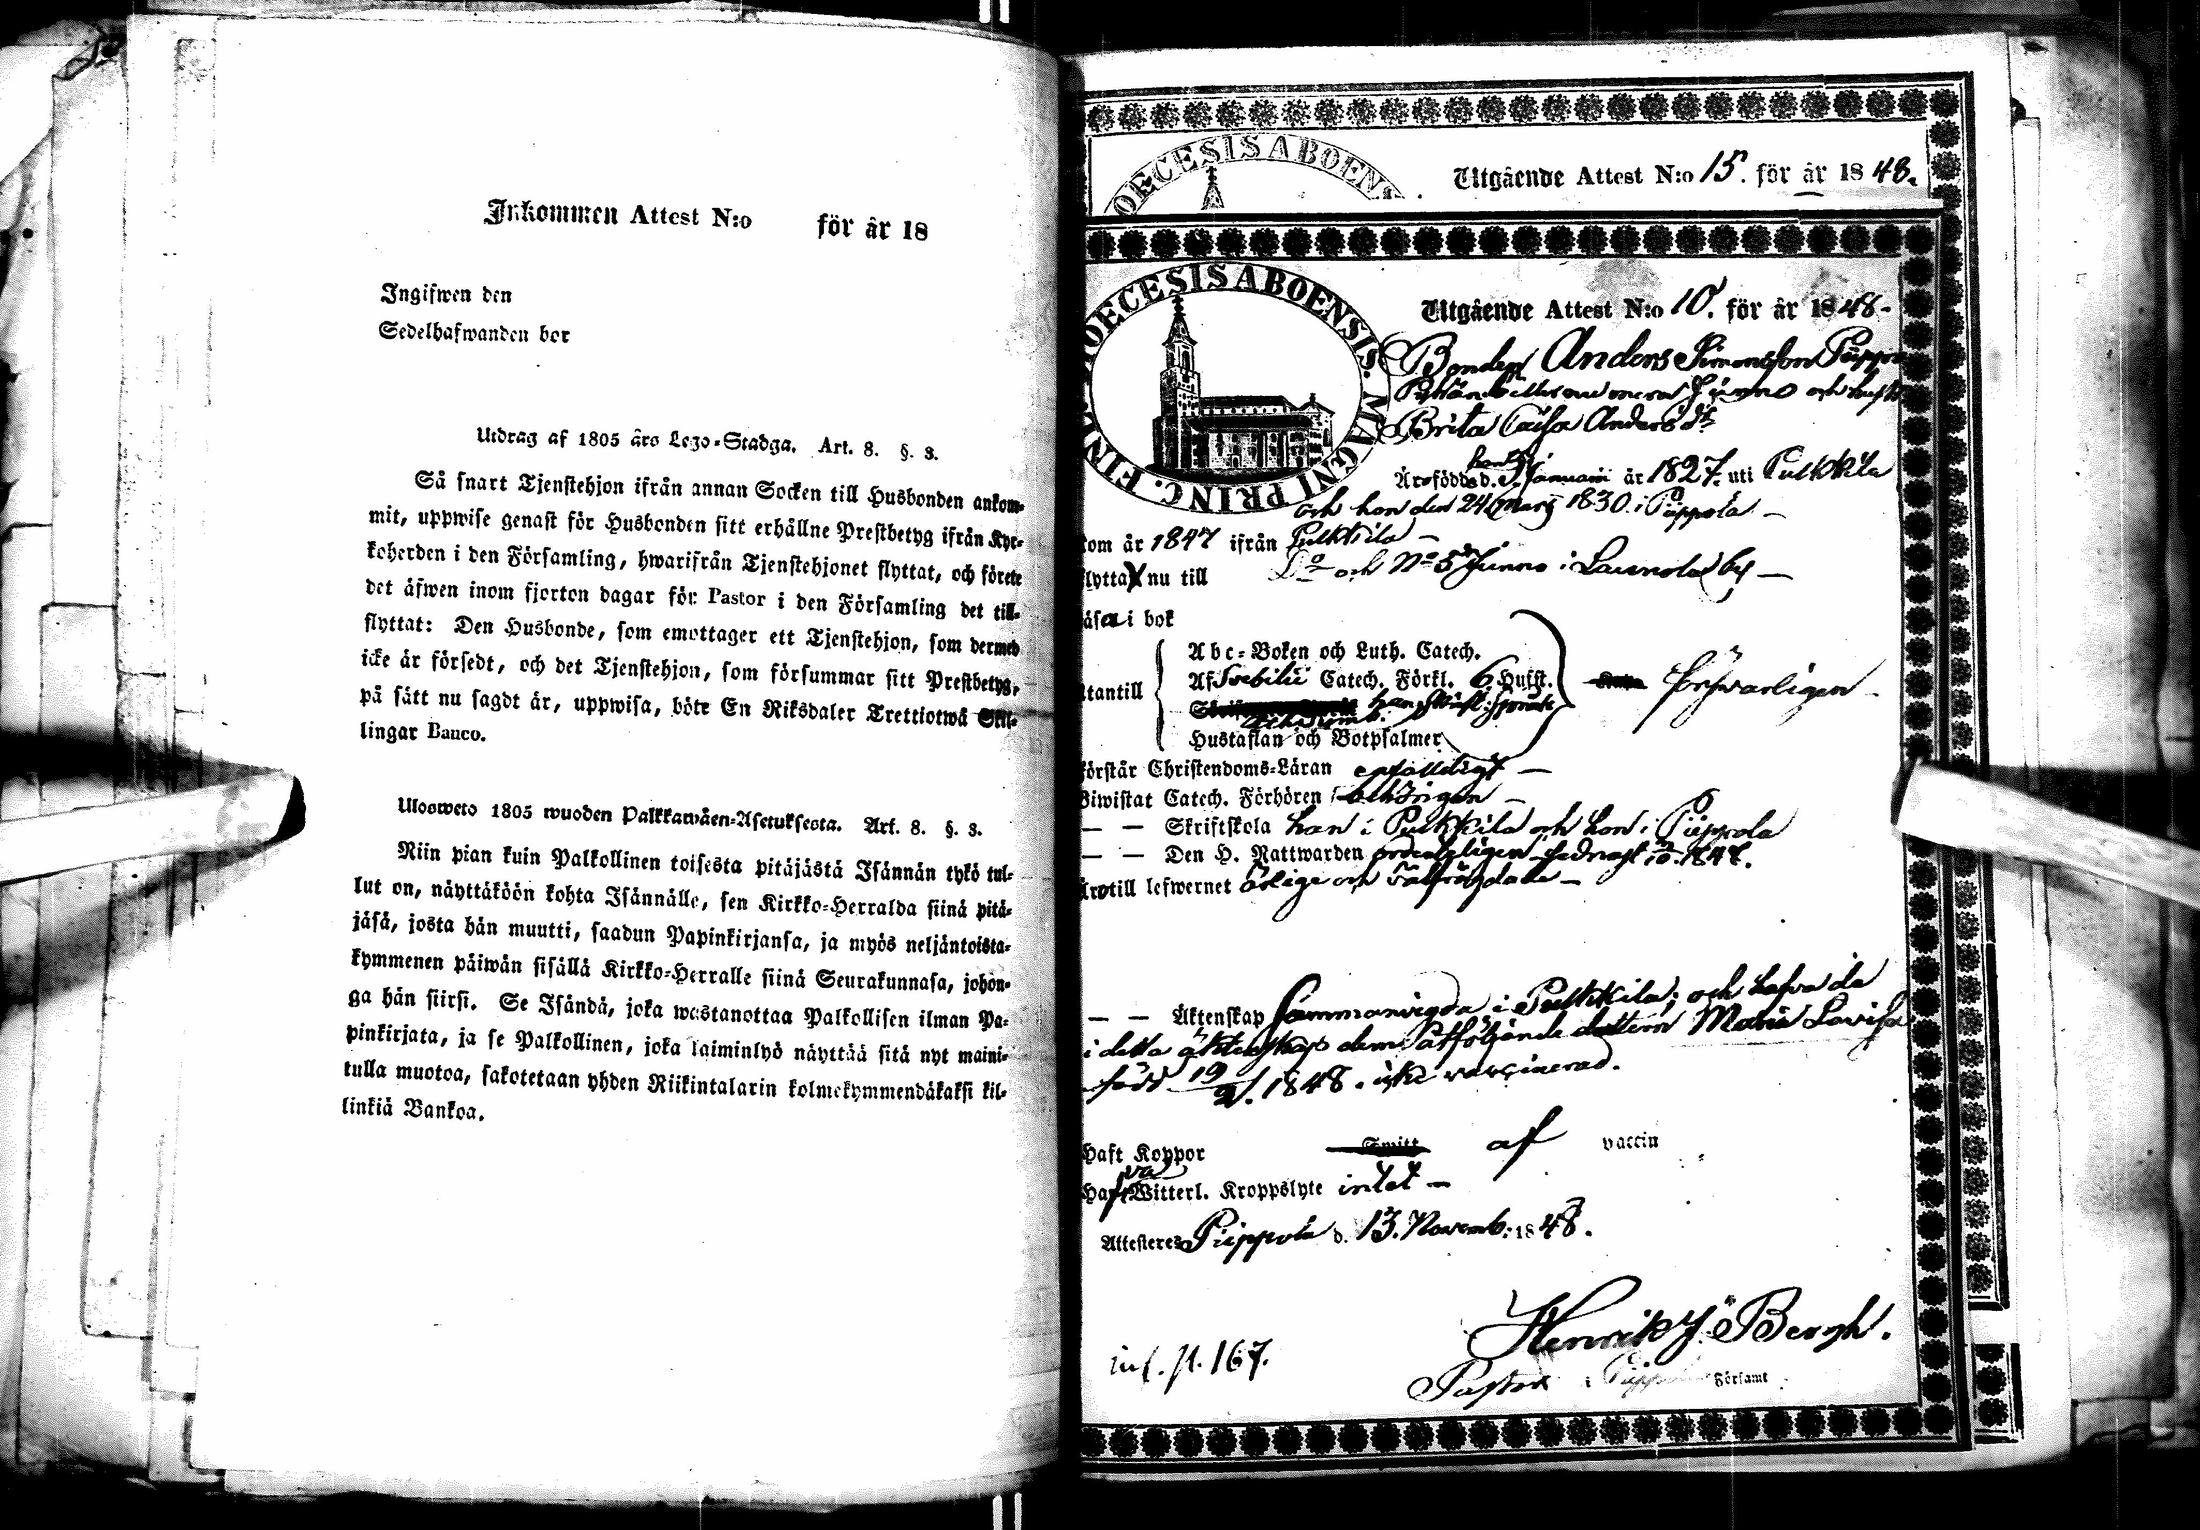 Inkommen Attest N:o för år 18
Ingifwen den
Sedelhafwanden bor
Utdrag af 1805 års Lego-Stadga. Art. 8. §. 3.
Så snart Tjenstehjon ifrån annan Socken till Husbonden ankom-
mit, uppwise genast för Husbonden sitt erhållne Prestbetyg ifrån Kyr-
koherden i den Församling, hwarifrån Tjenstehjonet flyttat, och förete
det äfwen inom fjorton dagar för Pastor i den Församling det till-
flyttat: Den Husbonde, som emottager ett Tjenstehjon, som dermed
icke är försedt, och det Tjenstehjon, som försummar sitt Prestbetyg,
på sätt nu sagdt är, uppwisa, böte En Riksdaler Trettiotwå Skil-
lingar Banco.
Ulosweto 1805 wuoden Palkkawäen-Asetuksesta. Art. 8. §. 3.
Niin pian kuin Palkollinen toisesta pitäjästä Isännän tykö tul-
lut on, näyttäköön kohta Isännälle, sen Kirkko-Herralda siinä pitä-
jäsä, josta hän muutti, saadun Papinkirjansa, ja myös neljäntoista-
kymmenen päiwän sisällä Kirkko-Herralle siinä Seurakunnasa, johon-
ga hän siirsi. Se Isändä, joka wastanottaa Palkollisen ilman Pa-
pinkirjata, ja se Palkollinen, joka laiminlyö näyttää sitä nyt maini-
tulla muotoa, sakotetaan yhden Riikintalarin kolmekymmendäkaksi kil-
linkiä Bankoa.
DOECESIS ABOENS
Utgående Attest N:o 15. för år 1848.
DOECESIS ABOENSIS. MAGNI PRINC. FINL.
Utgående Attest N:o 10. för år 1848.
Bonden Anders Simonsson Piippo
Junno och
Brita Caisa Andersd:r
Är född d. han 5 Januarii år 1827. uti Pulkkila
och hon den 24 Mars 1830. i Piippola
kom år 1847 ifrån Pulkkila
flytta nu till D:o och N:o 5 Junno i Laurola by
läsa i bok
utantill
Abc-Boken och Luth. Catech.
Af Svebilii Catech. Förkl. 6 Hufst.
Hustaflan och Botpsalmer
försvarligen
förstår Christendoms-Läran enfaldigt
Biwistat Catech. Förhören behörigen
— — Skriftskola han i Pulkkila och hon i Piippola
— — Den H. Nattwarden ordentligen sednast 1848.
Äro till lefwernet ärlige och välfrägdade
— — Äktenskap sammanvigda i Pulkkila; och hafva de
i detta äktenskap dem åtföljande dottern Maria Lovisa
född 19/9. 1848. icke vaccinerad.
Haft Koppor af vaccin
Hafva Witterl. Kroppslyte intet
Attesteres Piippola d. 13. Novemb. 1848.
Henrik J. Bergh.
Pastor i Piippola Församl
inf. p. 167.